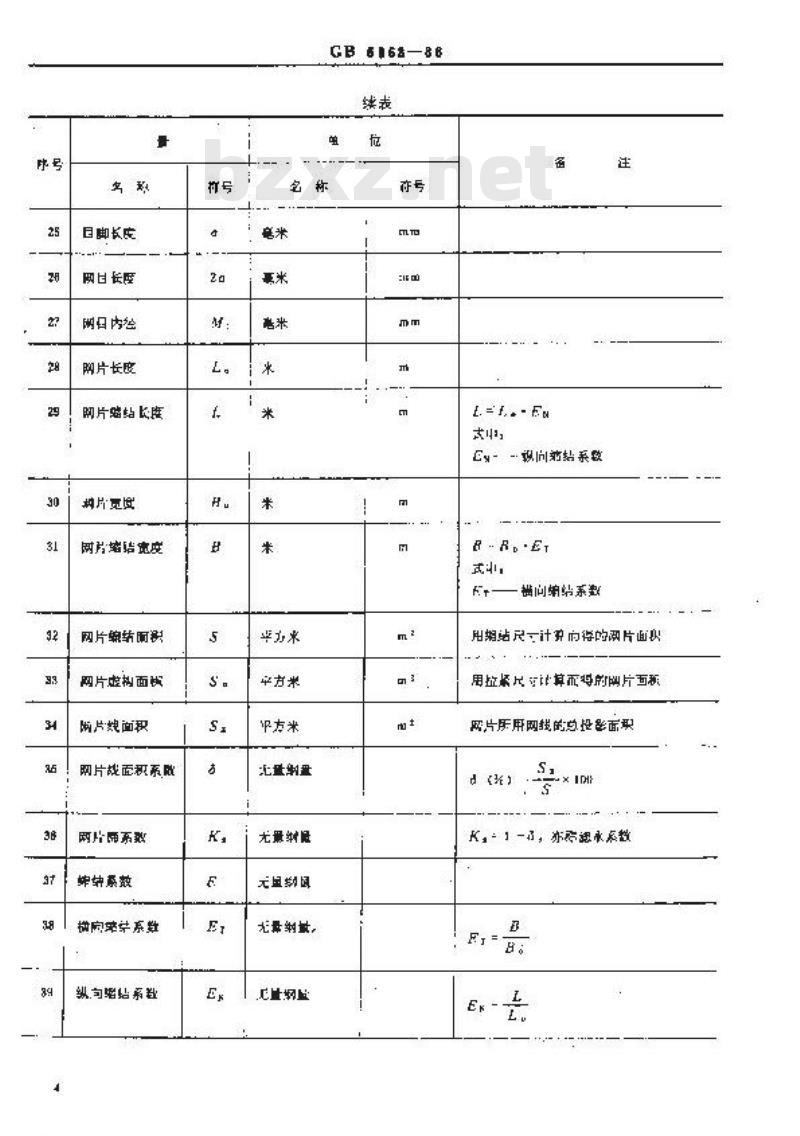 GB 6963—86
续表
序号 量 单位 备注
名称 符号 名称 符号
25 目脚长度 a 毫米 mm
26 网目长度 2a 毫米 mm
27 网目内径 M 毫米 mm
28 网片长度 L₀ 米 m
29 网片缩结长度 L 米 m L=L₀·E_N
式中:
E_N——纵向缩结系数
30 网片宽度 B₀ 米 m
31 网片缩结宽度 B 米 m B=B₀·E_T
式中:
E_T——横向缩结系数
32 网片缩结面积 S 平方米 m² 用缩结尺寸计算而得的网片面积
33 网片虚构面积 S₀ 平方米 m² 用拉紧尺寸计算而得的网片面积
34 网片线面积 平方米 m² 网片所用网线的总投影面积
35 网片线面积系数 δ 无量纲量 ×100
36 无量纲量 =1-δ,亦称滤水系数
37 缩结系数 E 无量纲量
38 横向缩结系数 E_T 无量纲量 E_T=B/B₀
39 纵向缩结系数 E_N 无量纲量 E_N=L/L₀
4
bzxz.net